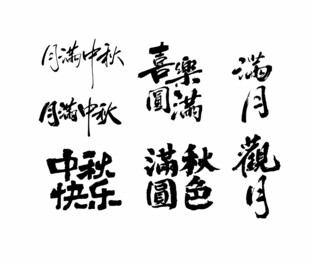 月满中秋
月满中秋
中秋
快乐
喜樂
圓滿
滿秋
圓色
满月
觀月